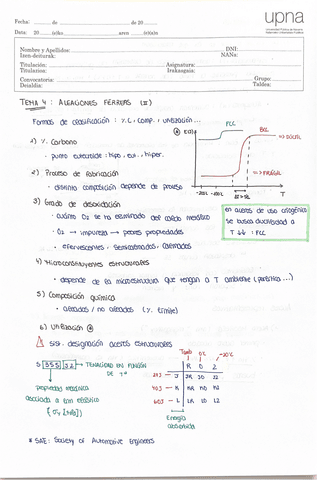 Fecha: de de 20
upna
Data: 20 (e)ko aren (e)a(n)
Nombre y Apellidos: DNI:
Izen-deiturak: NANa:
Titulación: Asignatura:
Titulazioa: Irakasgaia:
Convocatoria: Grupo:
Deialdia: Taldea:
TEMA 4: ALEACIONES FERREAS (II)
Formas de clasificación: % C, comp., utilización...
1) % Carbono
- punto eutectoide: hipo, eut., hiper.
2) Proceso de fabricación
- distinta composición depende de proceso
3) Grado de desoxidación
- cuánto O₂ se ha eliminado del caldo metálico
- O₂ → impureza → peores propiedades
- efervescentes, semicalmados, calmados
4) Microconstituyentes estructurales
- depende de la microestructura que tengan a T ambiente (perlítica...)
5) Composición química
- aleados / no aleados (% límite)
6) Utilización
FCC
BCC
→ DÚCTIL
→ FRÁGIL
-200°C -100°C
T
en aceros de uso criogénico
se busca ductilidad a
T ↓↓ : FCC
Sist. designación acero estructurales
S 355 J2 → TENACIDAD EN FUNCIÓN
DE Tª
propiedades mecánica
asociada a lim elástico
Tamb 0°C -20°C
R 0 2
27J — J JR J0 J2
40J — K KR K0 K2
60J — L LR L0 L2
Energía
absorbida
* SAE: Society of Automotive Engineers